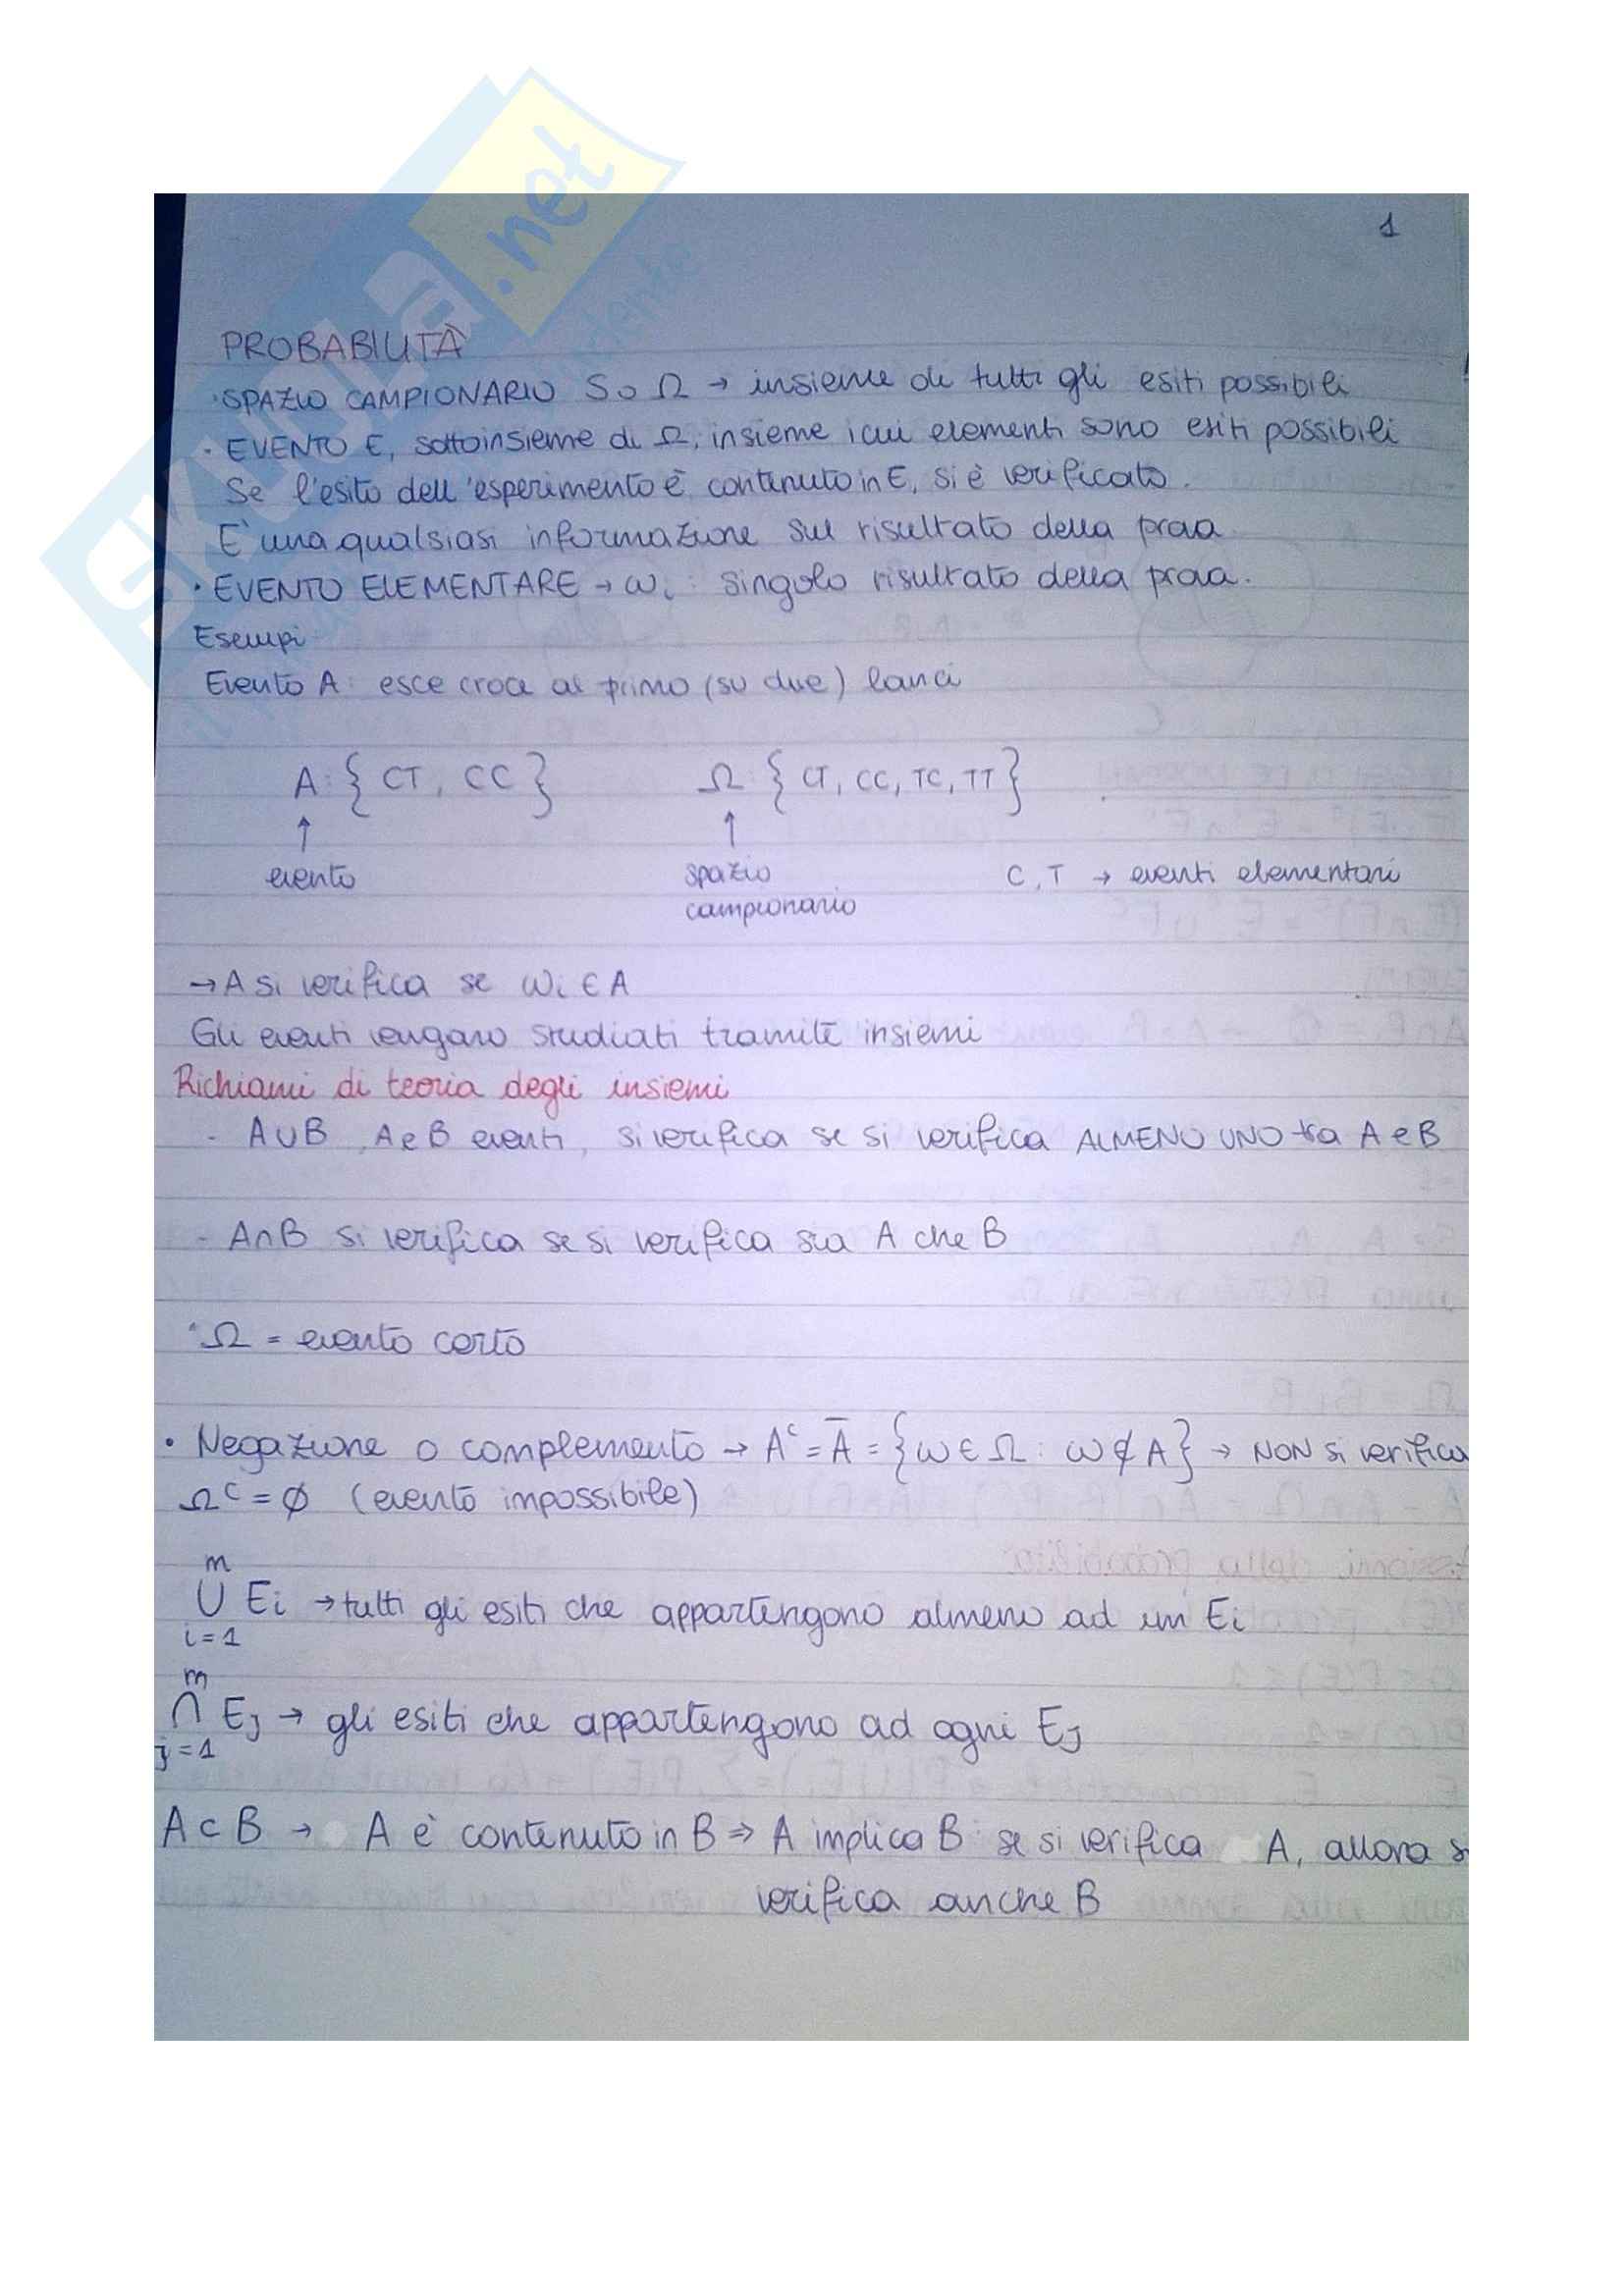 1
PROBABILITÀ
· SPAZIO CAMPIONARIO S o Ω → insieme di tutti gli esiti possibili
· EVENTO E, sottoinsieme di Ω, insieme i cui elementi sono esiti possibili
Se l'esito dell'esperimento è contenuto in E, si è verificato.
E' una qualsiasi informazione sul risultato della prova
· EVENTO ELEMENTARE → ωi : singolo risultato della prova.
Esempi
Evento A: esce croce al primo (su due) lanci
A: { CT, CC } Ω { CT, CC, TC, TT }
↑ ↑
evento spazio campionario C, T → eventi elementari
→ A si verifica se ωi ∈ A
Gli eventi vengono studiati tramite insiemi
Richiami di teoria degli insiemi
- A∪B, A e B eventi, si verifica se si verifica ALMENO UNO tra A e B
- A∩B si verifica se si verifica sia A che B
· Ω = evento certo
· Negazione o complemento → Aᶜ = A̅ = {ω ∈ Ω : ω ∉ A} → NON si verifica
Ωᶜ = ∅ (evento impossibile)
m
∪ Ei → tutti gli esiti che appartengono almeno ad un Ei
i=1
m
∩ Ej → gli esiti che appartengono ad ogni Ej
j=1
A ⊂ B → A è contenuto in B ⇒ A implica B : se si verifica A, allora s
verifica anche B
SKUOLA.net